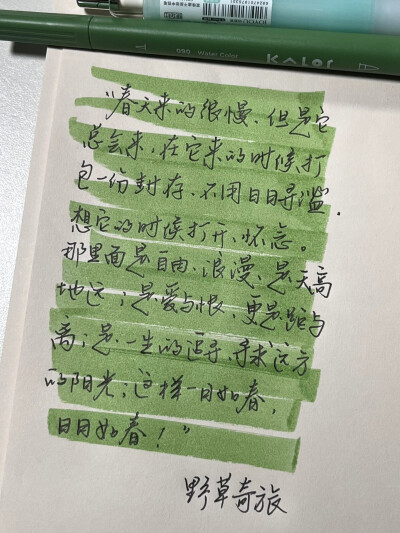 090 Water Color KALOR
“春天来的很慢、但是它
总会来，在它来的时候打
包一份封存，不用日日寻滥．
想它的时候打开、怀念。
那里面是自由、浪漫、是天高
地远；是爱与恨、更是距与
离；是一生的追寻、寻求远方
的阳光；这样一日如春，
日日如春！”
野草奇旅